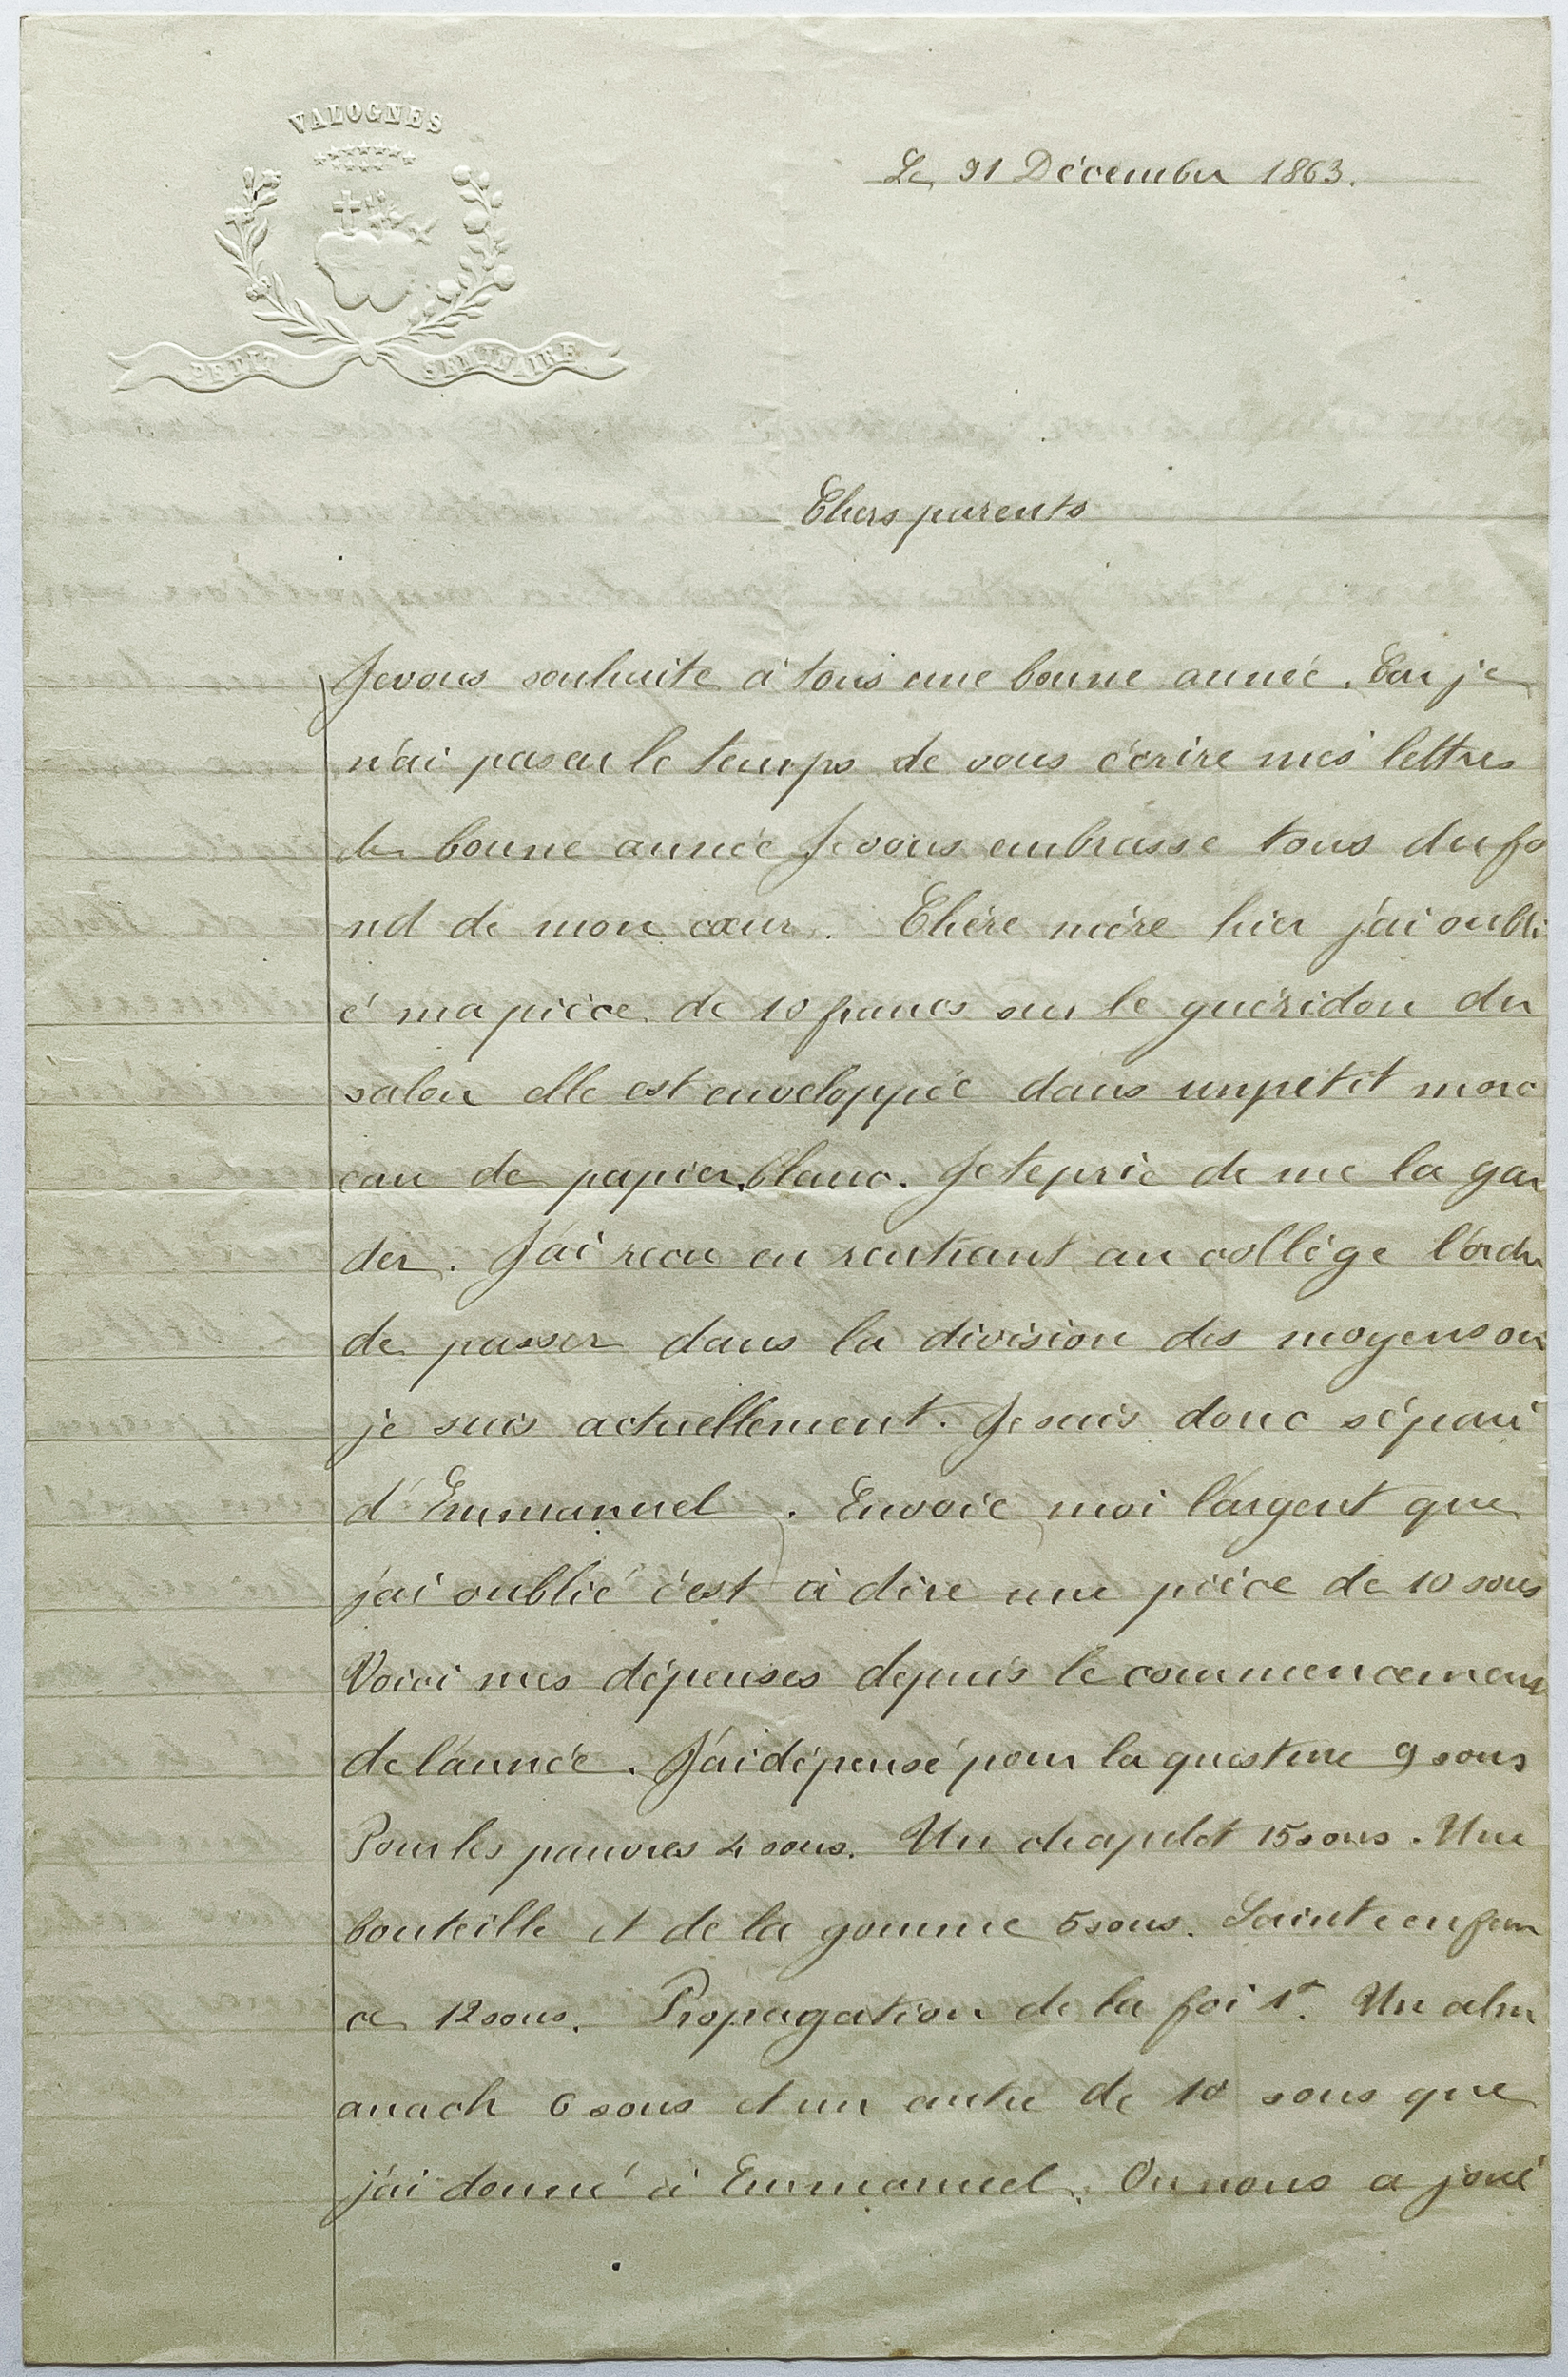 VALOGNES
PETIT SEMINAIRE
Le 31 Décembre 1863.
Chers parents
Je vous souhaite à tous une bonne année. Car je
n'ai pas eu le temps de vous écrire mes lettres
de bonne année Je vous embrasse tous du fo
nd de mon cœur. Chère mère hier j'ai oubli
é ma pièce de 10 francs sur le guéridon du
salon elle est enveloppée dans un petit morc
eau de papier blanc. Je te prie de me la gar
der. J'ai reçu en rentrant au collège l'ordre
de passer dans la division des moyens ou
je suis actuellement. Je suis donc séparé
d'Emmanuel. Envoie moi l'argent que
j'ai oublié c'est à dire une pièce de 10 sous
Voici mes dépenses depuis le commencement
de l'année. J'ai dépensé pour la questure 9 sous
Pour les pauvres 4 sous. Un chapelet 15 sous. Une
bouteille et de la gomme 5 sous. Sainte enfan
ce 12 sous. Propagation de la foi 1f. Un alm
anach 6 sous et un autre de 10 sous que
j'ai donné à Emmanuel. On nous a joué